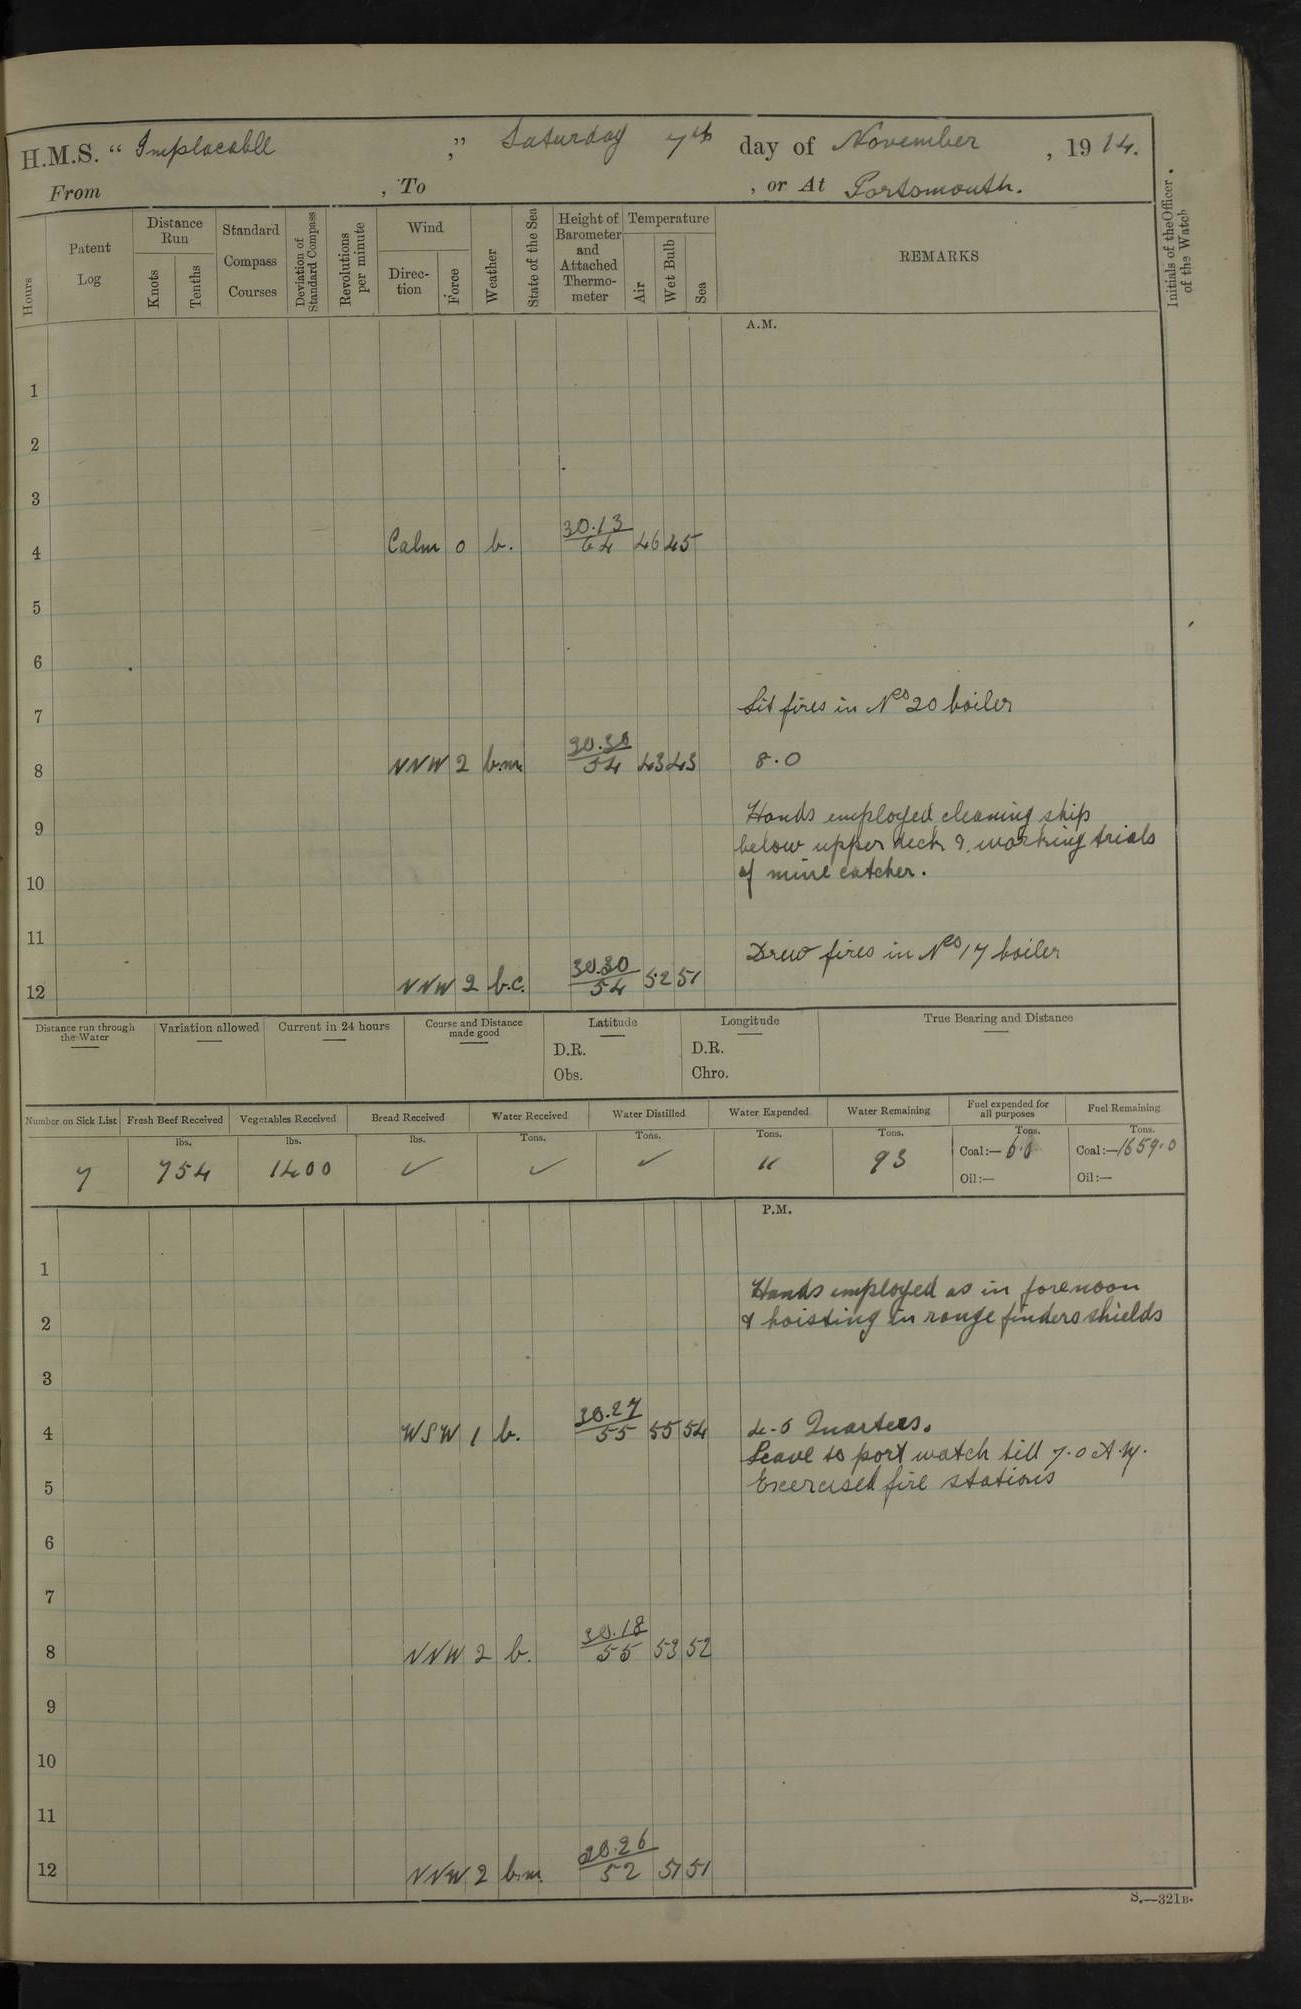 H.M.S. “ Implacable ,” Saturday 7th day of November , 1914.
From , To , or At Portsmouth.
Hours
Patent Log
Distance Run
Knots
Tenths
Standard Compass Courses
Deviation of Standard Compass
Revolutions per minute
Wind
Direc- tion
Force
Weather
State of the Sea
Height of Barometer and Attached Thermo- meter
Temperature
Air
Wet Bulb
Sea
REMARKS
Initials of the Officer of the Watch
A.M.
1
2
3
4 Calm 0 b. 30.13/64 46 45
5
6
7 Lit fires in Nos 20 boiler
8 NNW 2 b.m. 30.30/54 43 43 8.0
9 Hands employed cleaning ship
below upper deck & working trials
10 of mine catcher.
11 Drew fires in Nos 17 boiler
12 NNW 2 b.c. 30.30/54 52 51
Distance run through the Water
Variation allowed
Current in 24 hours
Course and Distance made good
Latitude
D.R.
Obs.
Longitude
D.R.
Chro.
True Bearing and Distance
Number on Sick List
Fresh Beef Received
Vegetables Received
Bread Received
Water Received
Water Distilled
Water Expended
Water Remaining
Fuel expended for all purposes
Fuel Remaining
lbs. lbs. lbs. Tons. Tons. Tons. Tons. Tons. Tons.
7 754 1400 ✓ ✓ ✓ 〃 93 Coal:— 6.0 Coal:—1659.0
Oil:— Oil:—
P.M.
1 Hands employed as in forenoon
2 & hoisting in range finders shields
3
4 WSW 1 b. 30.27/55 55 54 4-0 Quarters.
Leave to port watch till 7.0 A.M.
5 Exercised fire stations
6
7
8 NNW 2 b. 30.18/55 53 52
9
10
11
12 NNW 2 b.m. 30.26/52 51 51
S.—321B.